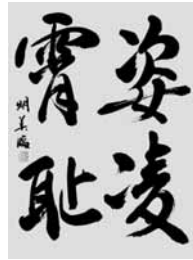 姿凌
霄耻
明美临